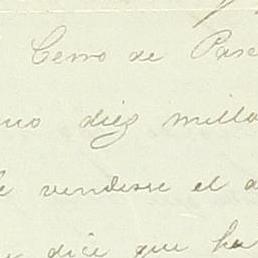 Cerro de Pasc
uno diez millo
de venderse el a
y dice que ha